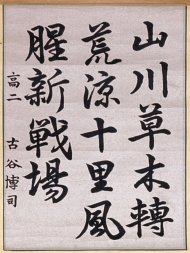 山川草木轉
荒涼十里風
腥新戰場
高二 古谷博司